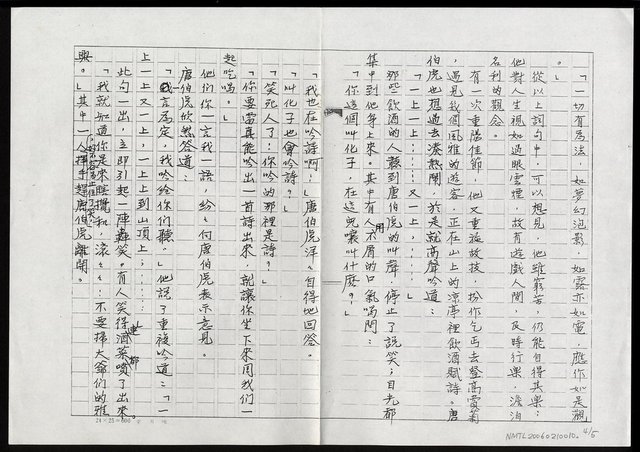 「一切有為法，如夢幻泡影，如露亦如電，應作如是觀
。」
從以上詞句中，可以想見，他雖窮苦，仍能自得其樂；
他對人生視如過眼雲煙，故有遊戲人間，及時行樂，澹泊
名利的觀念。
有一次重陽佳節，他又重施故技，扮作乞丐去登高賞菊
，遇見幾個風雅的遊客，正在山上的涼亭裡飲酒賦詩。唐
伯虎也想過去湊熱鬧，於是就高聲吟道：
「一上一上……又一上，……」
那些飲酒的人聽到唐伯虎的叫聲，停止了說笑；目光都
集中到他身上來，其中有人用不屑的口氣喝問：
「你這個叫化子，在這兒嚷叫什麼？」
「我也在吟詩啊！」唐伯虎洋々自得地回答。
「叫化子也會吟詩？」
「笑死人了！你吟的那裡是詩？」
「你要當真能吟出一首詩出來，就讓你坐下來用我們一
起吃喝。」
他們你一言我一語，紛々向唐伯虎表示意見。
唐伯虎欣然答道：
「一言為定，我吟給你們聽。」他說了重複吟道：「一
上一上又一上，一上上到山頂上；……」
此句一出，立即引起一陣轟笑。有人笑得連酒菜都噴了出來。
「我就知道你是來瞎攪和，滾々々！不要掃大爺們的雅
興。」其中一人揮手趕唐伯虎離開。
24×25=600
NMTL20060210010
4/5